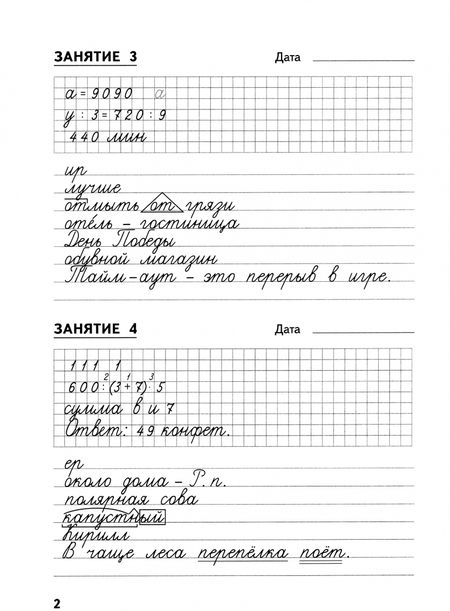 ЗАНЯТИЕ 3 Дата
а = 9090 а
у : 3 = 720 : 9
440 мин
ир
лучше
отмыть от грязи
отель – гостиница
День Победы
обувной магазин
Тайм-аут – это перерыв в игре.
ЗАНЯТИЕ 4 Дата
111 1
2 1 3
600:(3+7)·5
сумма в и 7
Ответ: 49 конфет.
ер
около дома – Р. п.
полярная сова
капустный
Кирилл
В чаще леса перепёлка поёт.
2